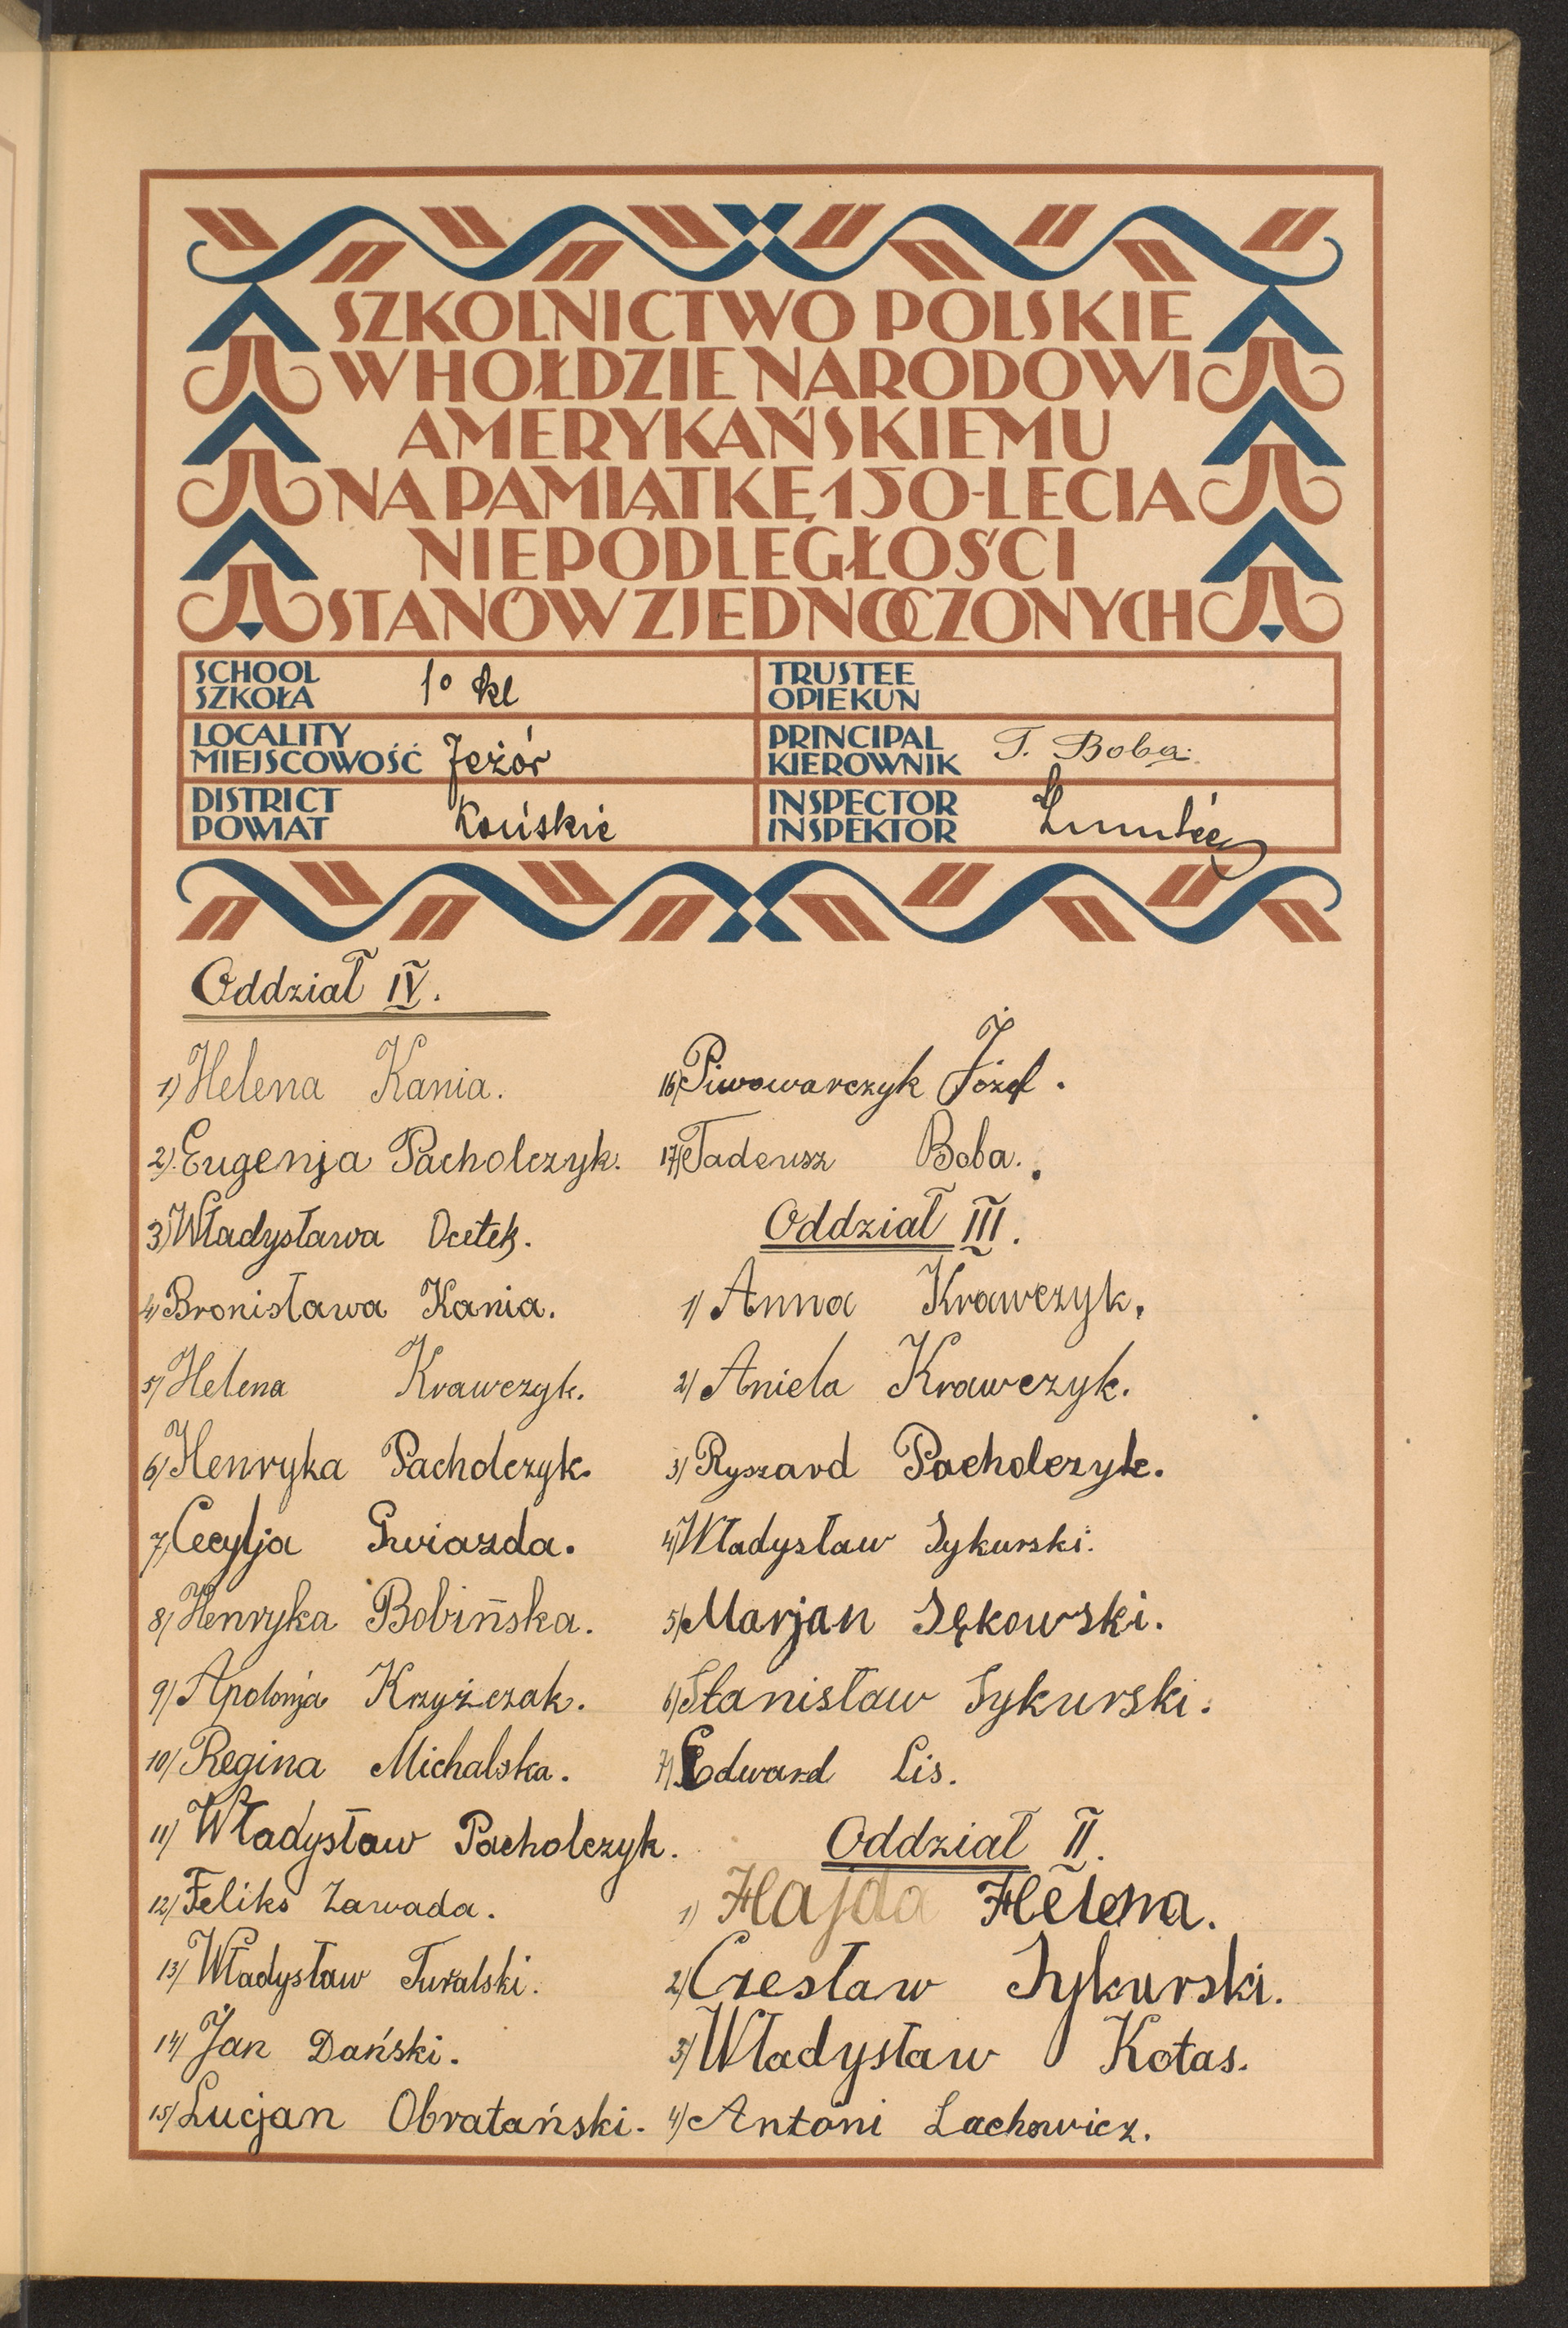 SZKOLNICTWO POLSKIE
W HOŁDZIE NARODOWI
AMERYKAŃSKIEMU
NA PAMIĄTKĘ 150-LECIA
NIEPODLEGŁOŚCI
STANÓW ZJEDNOCZONYCH
SCHOOL
SZKOŁA 1º kl
TRUSTEE
OPIEKUN
LOCALITY
MIEJSCOWOŚĆ Jeżór
PRINCIPAL
KIEROWNIK T. Boba
DISTRICT
POWIAT Końskie
INSPECTOR
INSPEKTOR
Oddział IV.
1) Helena Kania.
2) Eugenja Pacholczyk.
3) Władysława Ocetek.
4) Bronisława Kania.
5) Helena Krawczyk.
6) Henryka Pacholczyk.
7) Cecylja Gwiazda.
8) Henryka Bobińska.
9) Apolonja Krzyżczak.
10) Regina Michalska.
11) Władysław Pacholczyk.
12) Feliks Zawada.
13) Władysław Turalski.
14) Jan Dański.
15) Lucjan Obratański.
16) Piwowarczyk Józef.
17) Tadeusz Boba.
Oddział III.
1) Anna Krawczyk.
2) Aniela Krawczyk.
3) Ryszard Pacholczyk.
4) Władysław Sykurski.
5) Marjan Sękowski.
6) Stanisław Sykurski.
7) Edward Lis.
Oddział II.
1) Hajda Helena.
2) Czesław Sykurski.
3) Władysław Kotas.
4) Antoni Lachowicz.